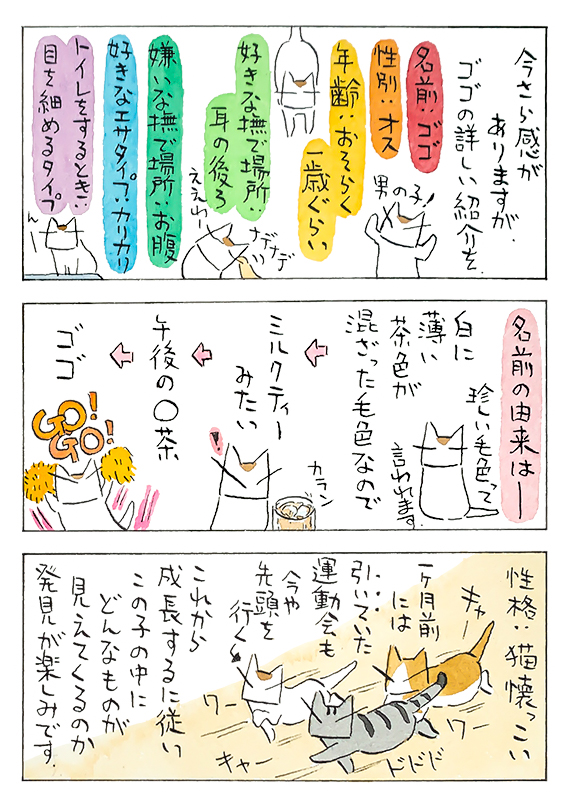 今さら感が
ありますが、
ゴゴの詳しい紹介を。
名前:ゴゴ
性別:オス
男の子!
年齢:おそらく
一歳ぐらい
好きな撫で場所:
耳の後ろ
ナデナデ
ええわー
嫌いな撫で場所:お腹
好きなエサタイプ:カリカリ
トイレをするとき:
目を細めるタイプ
ん
名前の由来はー
珍しい毛色って
言われます。
白に
薄い
茶色が
混ざった毛色なので
カラン
ミルクティー
みたい
!
午後の〇茶
ゴゴ
GO!
GO!
性格:猫懐っこい
キャ
ワー
ドドドド
一ヶ月前
には
引いていた
運動会も
今や
先頭を
行く
ワー
キャー
これから
成長するに従い
この子の中に
どんなものが
見えてくるのか
発見が楽しみです。